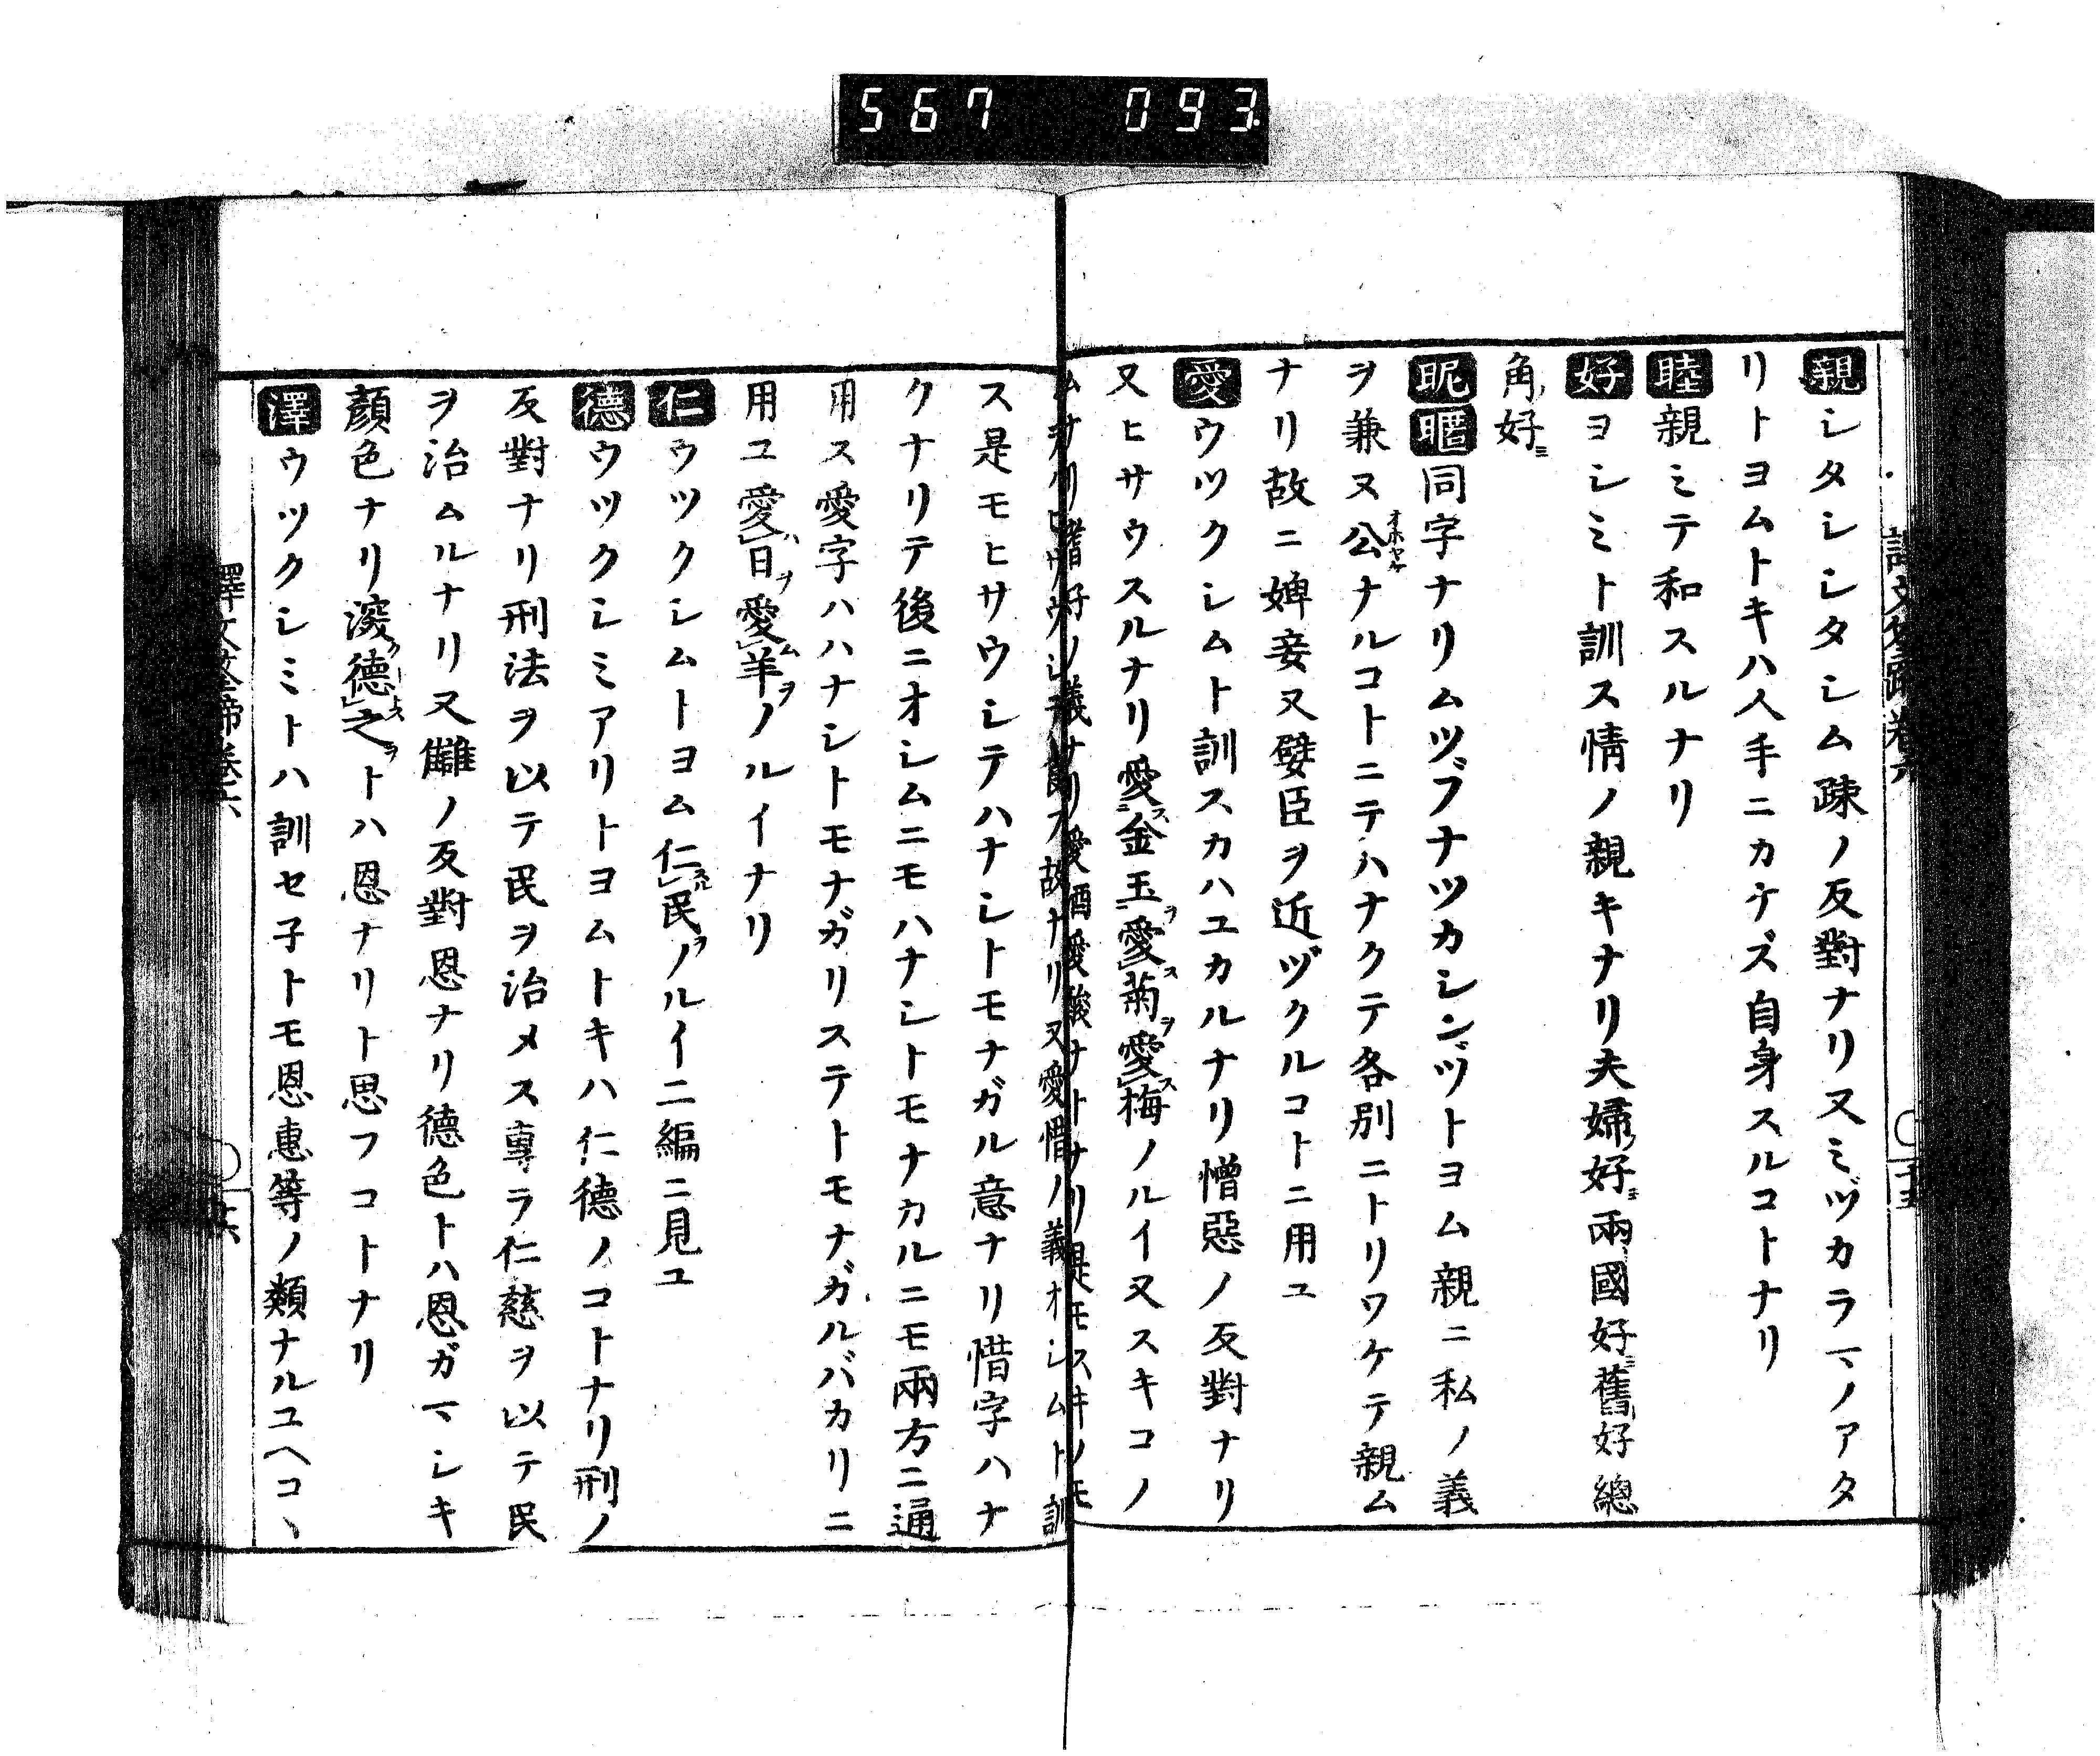 567 093
親シタシシタシム疎ノ反對ナリ又ミヅカラマノアタ
リトヨムトキハ人手ニカケズ自身スルコトナリ
睦親ミテ和スルナリ
好ヨシミト訓ス情ノ親キナリ夫婦ノ好ミ兩國好ミ舊好總
角ノ好ミ
昵暱同字ナリムツブナツカシンヅトヨム親ニ私ノ義
ヲ兼ヌ公オホヤケナルコトニテハナクテ各別ニトリワケテ親ム
ナリ故ニ婢妾又嬖臣ヲ近ヅクルコトニ用ユ
愛ウツクシムト訓スカハユカルナリ憎惡ノ反對ナリ
又ヒサウスルナリ愛ス金玉ヲ愛ス菊ヲ愛ス梅ノルイ又スキコノ
ムナリ嗜好ノ義ナリ愛酒愛酸ナトナリ是モスキノモ
ヲハヒサウシテ翫フ故ナリ又愛惜ノ義オシムト訓
ス是モヒサウシテハナシトモナガル意ナリ惜字ハナ
クナリテ後ニオシムニモハナシトモナカルニモ兩方ニ通
用ス愛字ハハナシトモナガリステトモナガルバカリニ
用ユ愛ム日ヲ愛ム羊ヲノルイナリ
仁ウツクシムトヨム仁スル民ヲノルイ二編ニ見ユ
德ウツクシミアリトヨムトキハ仁德ノコトナリ刑ノ
反對ナリ刑法ヲ以テ民ヲ治メス專ラ仁慈ヲ以テ民
ヲ治ムルナリ又讎ノ反對恩ナリ德色トハ恩ガマシキ
顏色ナリ深ク德トス之ヲトハ恩ナリト思フコトナリ
澤ウツクシミトハ訓セ子トモ恩惠等ノ類ナルユヘコヽ
譯文筌蹄卷六